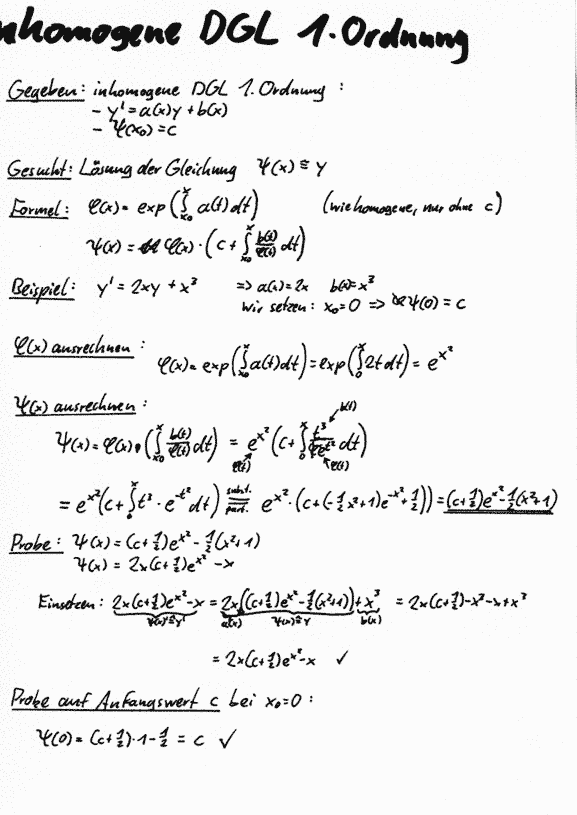 inhomogene DGL 1. Ordnung
Gegeben: inhomogene DGL 1. Ordnung :
- y' = a(x)y + b(x)
- Ψ(x₀) = c
Gesucht: Lösung der Gleichung Ψ(x) ≅ y
Formel: φ(x) = exp(∫_{x₀}^{x} a(t)dt) (wie homogene, nur ohne c)
Ψ(x) = φ(x) · (c + ∫_{x₀}^{x} b(t)/φ(t) dt)
Beispiel: y' = 2xy + x³ => a(x) = 2x b(x) = x³
Wir setzen: x₀ = 0 => Ψ(0) = c
φ(x) ausrechnen :
φ(x) = exp(∫_{x₀}^{x} a(t)dt) = exp(∫_{0}^{x} 2t dt) = e^{x²}
Ψ(x) ausrechnen :
b(t)
Ψ(x) = φ(x) · (∫_{x₀}^{x} b(t)/φ(t) dt) = e^{x²} (c + ∫_{0}^{x} t³/e^{t²} dt)
φ(t) φ(t)
= e^{x²}(c + ∫_{0}^{x} t³ · e^{-t²} dt) =(subst. part.) e^{x²} · (c + (-½x²+1)e^{-x²} + ½)) = (c+½)e^{x²} - ½(x²+1)
Probe: Ψ(x) = (c+½)e^{x²} - ½(x²+1)
Ψ(x) = 2x(c+½)e^{x²} - x
Einsetzen: 2x(c+½)e^{x²} - x = 2x((c+½)e^{x²} - ½(x²+1)) + x³ = 2x(c+½) - x³ - x + x³
Ψ(x)' ≅ y' a(x) Ψ(x) ≅ y b(x)
= 2x(c+½)e^{x²} - x ✓
Probe auf Anfangswert c bei x₀=0 :
Ψ(0) = (c+½)·1 - ½ = c ✓